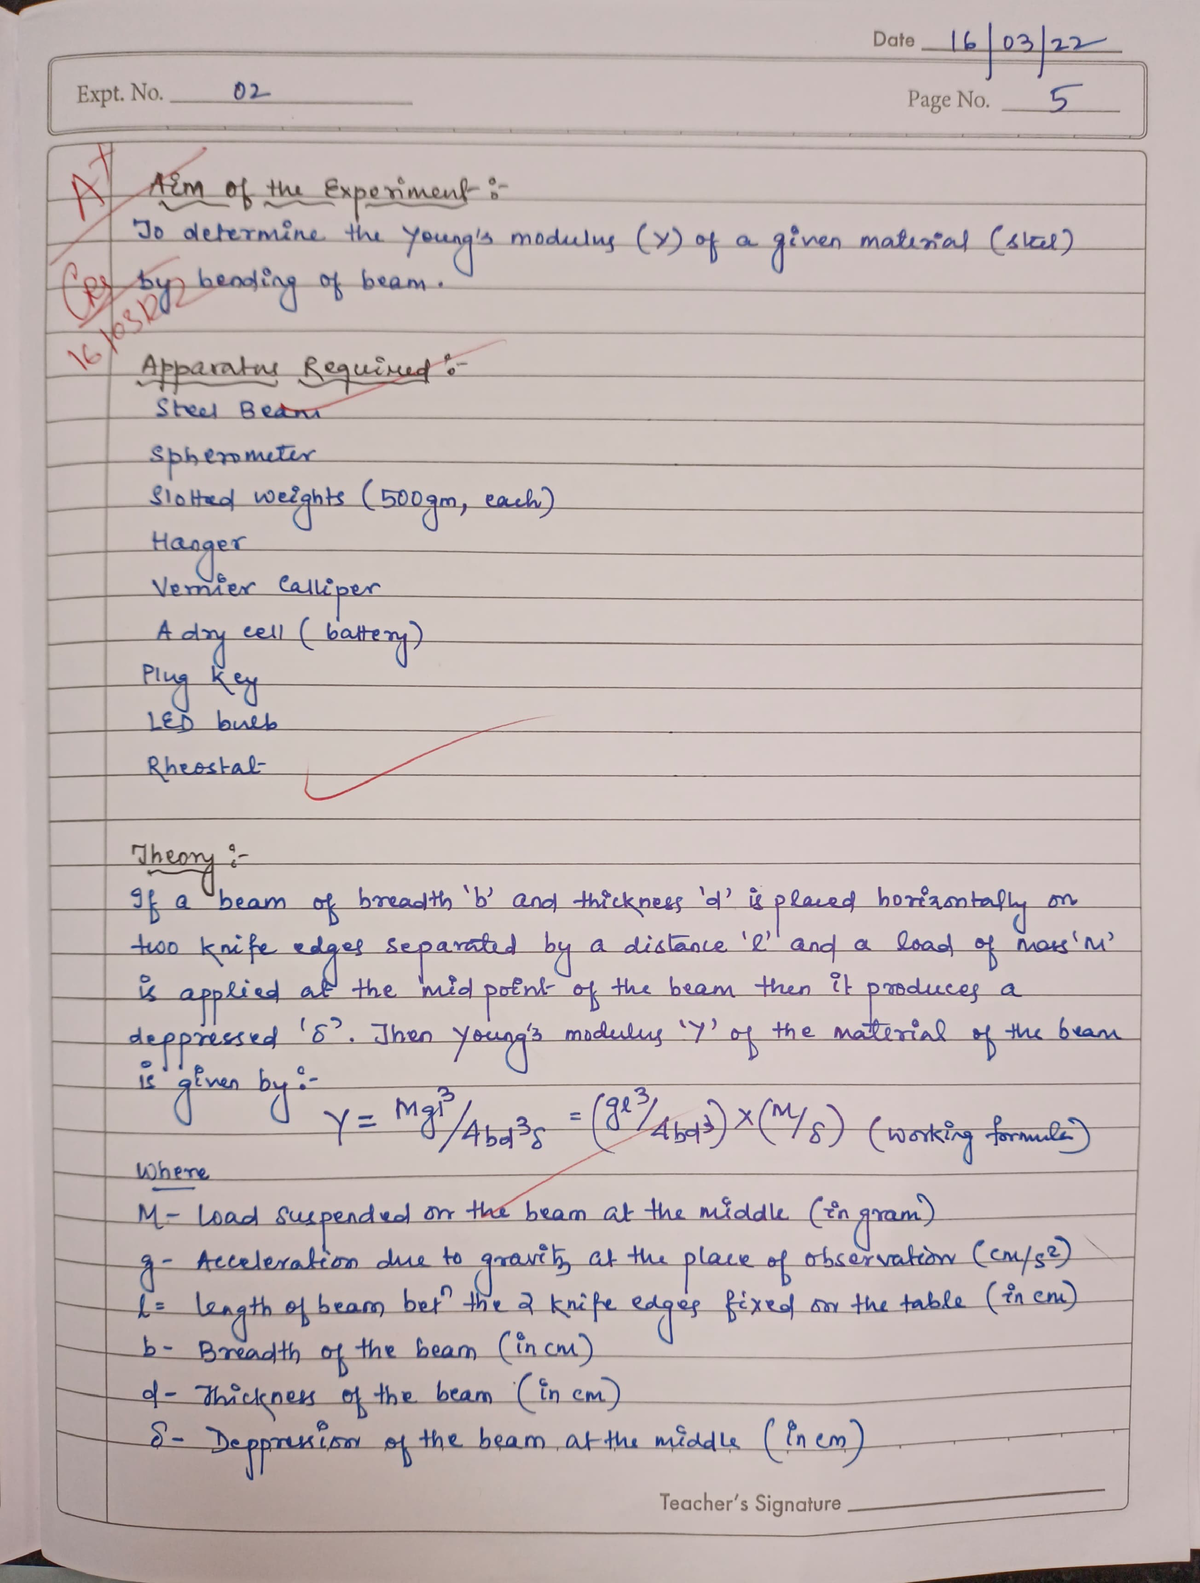 Date 16/03/22
Expt. No. 02
Page No. 5
A+
Aim of the Experiment :-
To determine the Young's modulus (Y) of a given material (steel)
by bending of beam.
16/03/22
Apparatus Required :-
Steel Beam
Spherometer
Slotted weights (500gm, each)
Hanger
Vernier Calliper
A dry cell (battery)
Plug Key
LED bulb
Rheostat
Theory :-
If a beam of breadth 'b' and thickness 'd' is placed horizontally on
two knife edges separated by a distance 'l' and a load of mass 'M'
is applied at the mid point of the beam then it produces a
deppressed 'δ'. Then Young's modulus 'Y' of the material of the beam
is given by :-
Y = Mgl³/4bd³δ = (gl³/4bd³) × (M/δ) (working formula)
Where
M - Load suspended on the beam at the middle (in gram)
g - Acceleration due to gravity at the place of observation (cm/s²)
l = length of beam betⁿ the 2 knife edges fixed on the table (in cm)
b - Breadth of the beam (in cm)
d - Thickness of the beam (in cm)
δ - Deppression of the beam at the middle (in cm)
Teacher's Signature